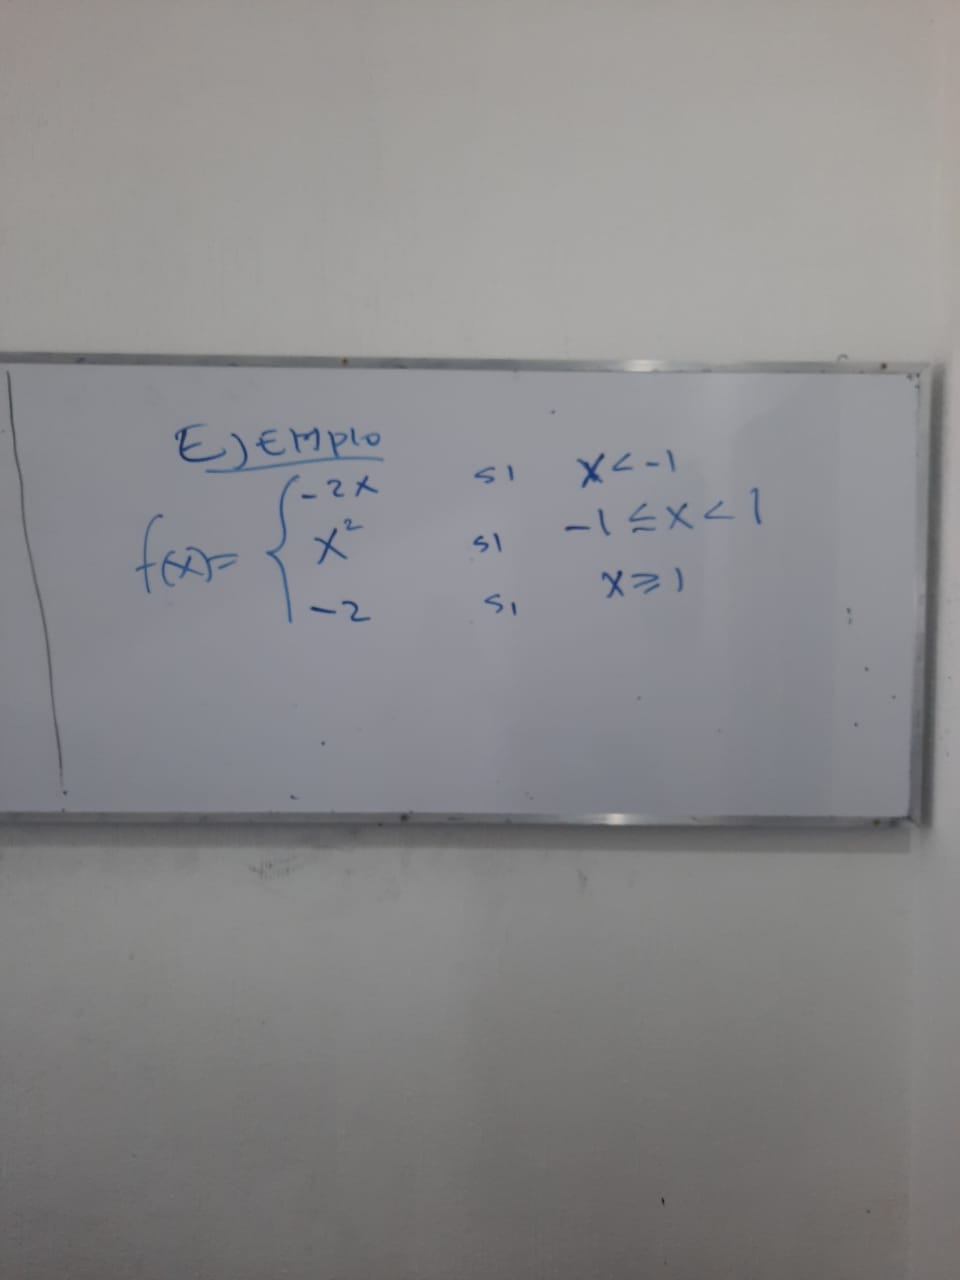 EJEMPlO
f(x)= { -2x si x<-1
x² si -1≤x<1
-2 si x≥1